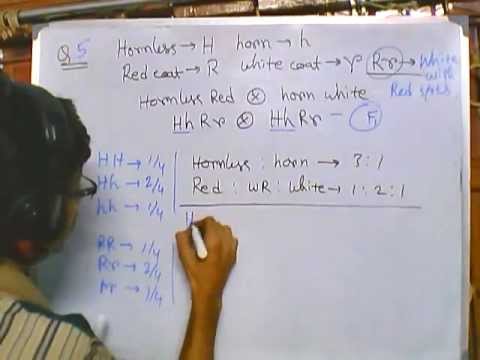 Q 5 Hornless → H horn → h
Red coat → R white coat → r Rr → White with Red spots
Hornless Red ⊗ horn white
Hh Rr ⊗ Hh Rr – F₁
HH → 1/4
Hh → 2/4
hh → 1/4
RR → 1/4
Rr → 2/4
rr → 1/4
Hornless : horn → 3 : 1
Red : WR : White → 1 : 2 : 1
H